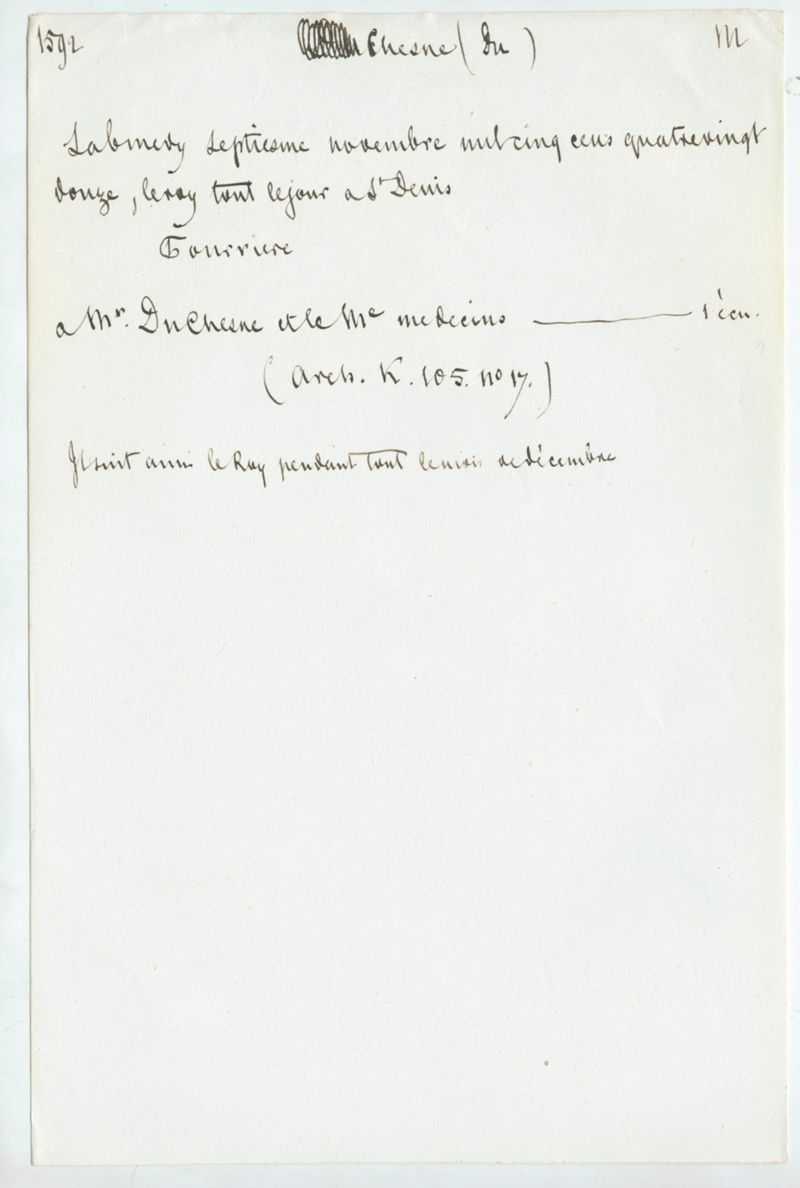 1592 Chesne (Du) M
Sabmedy septiesme novembre mil cinq cens quatrevingt
donze, le roy tout le jour a St Denis
Fourriere
a Mr. DuChesne et le Mc medecins ——— 1 écu.
(Arch. K. 105. no 17.)
Il suit ainsi le Roy pendant tout le mois de décembre